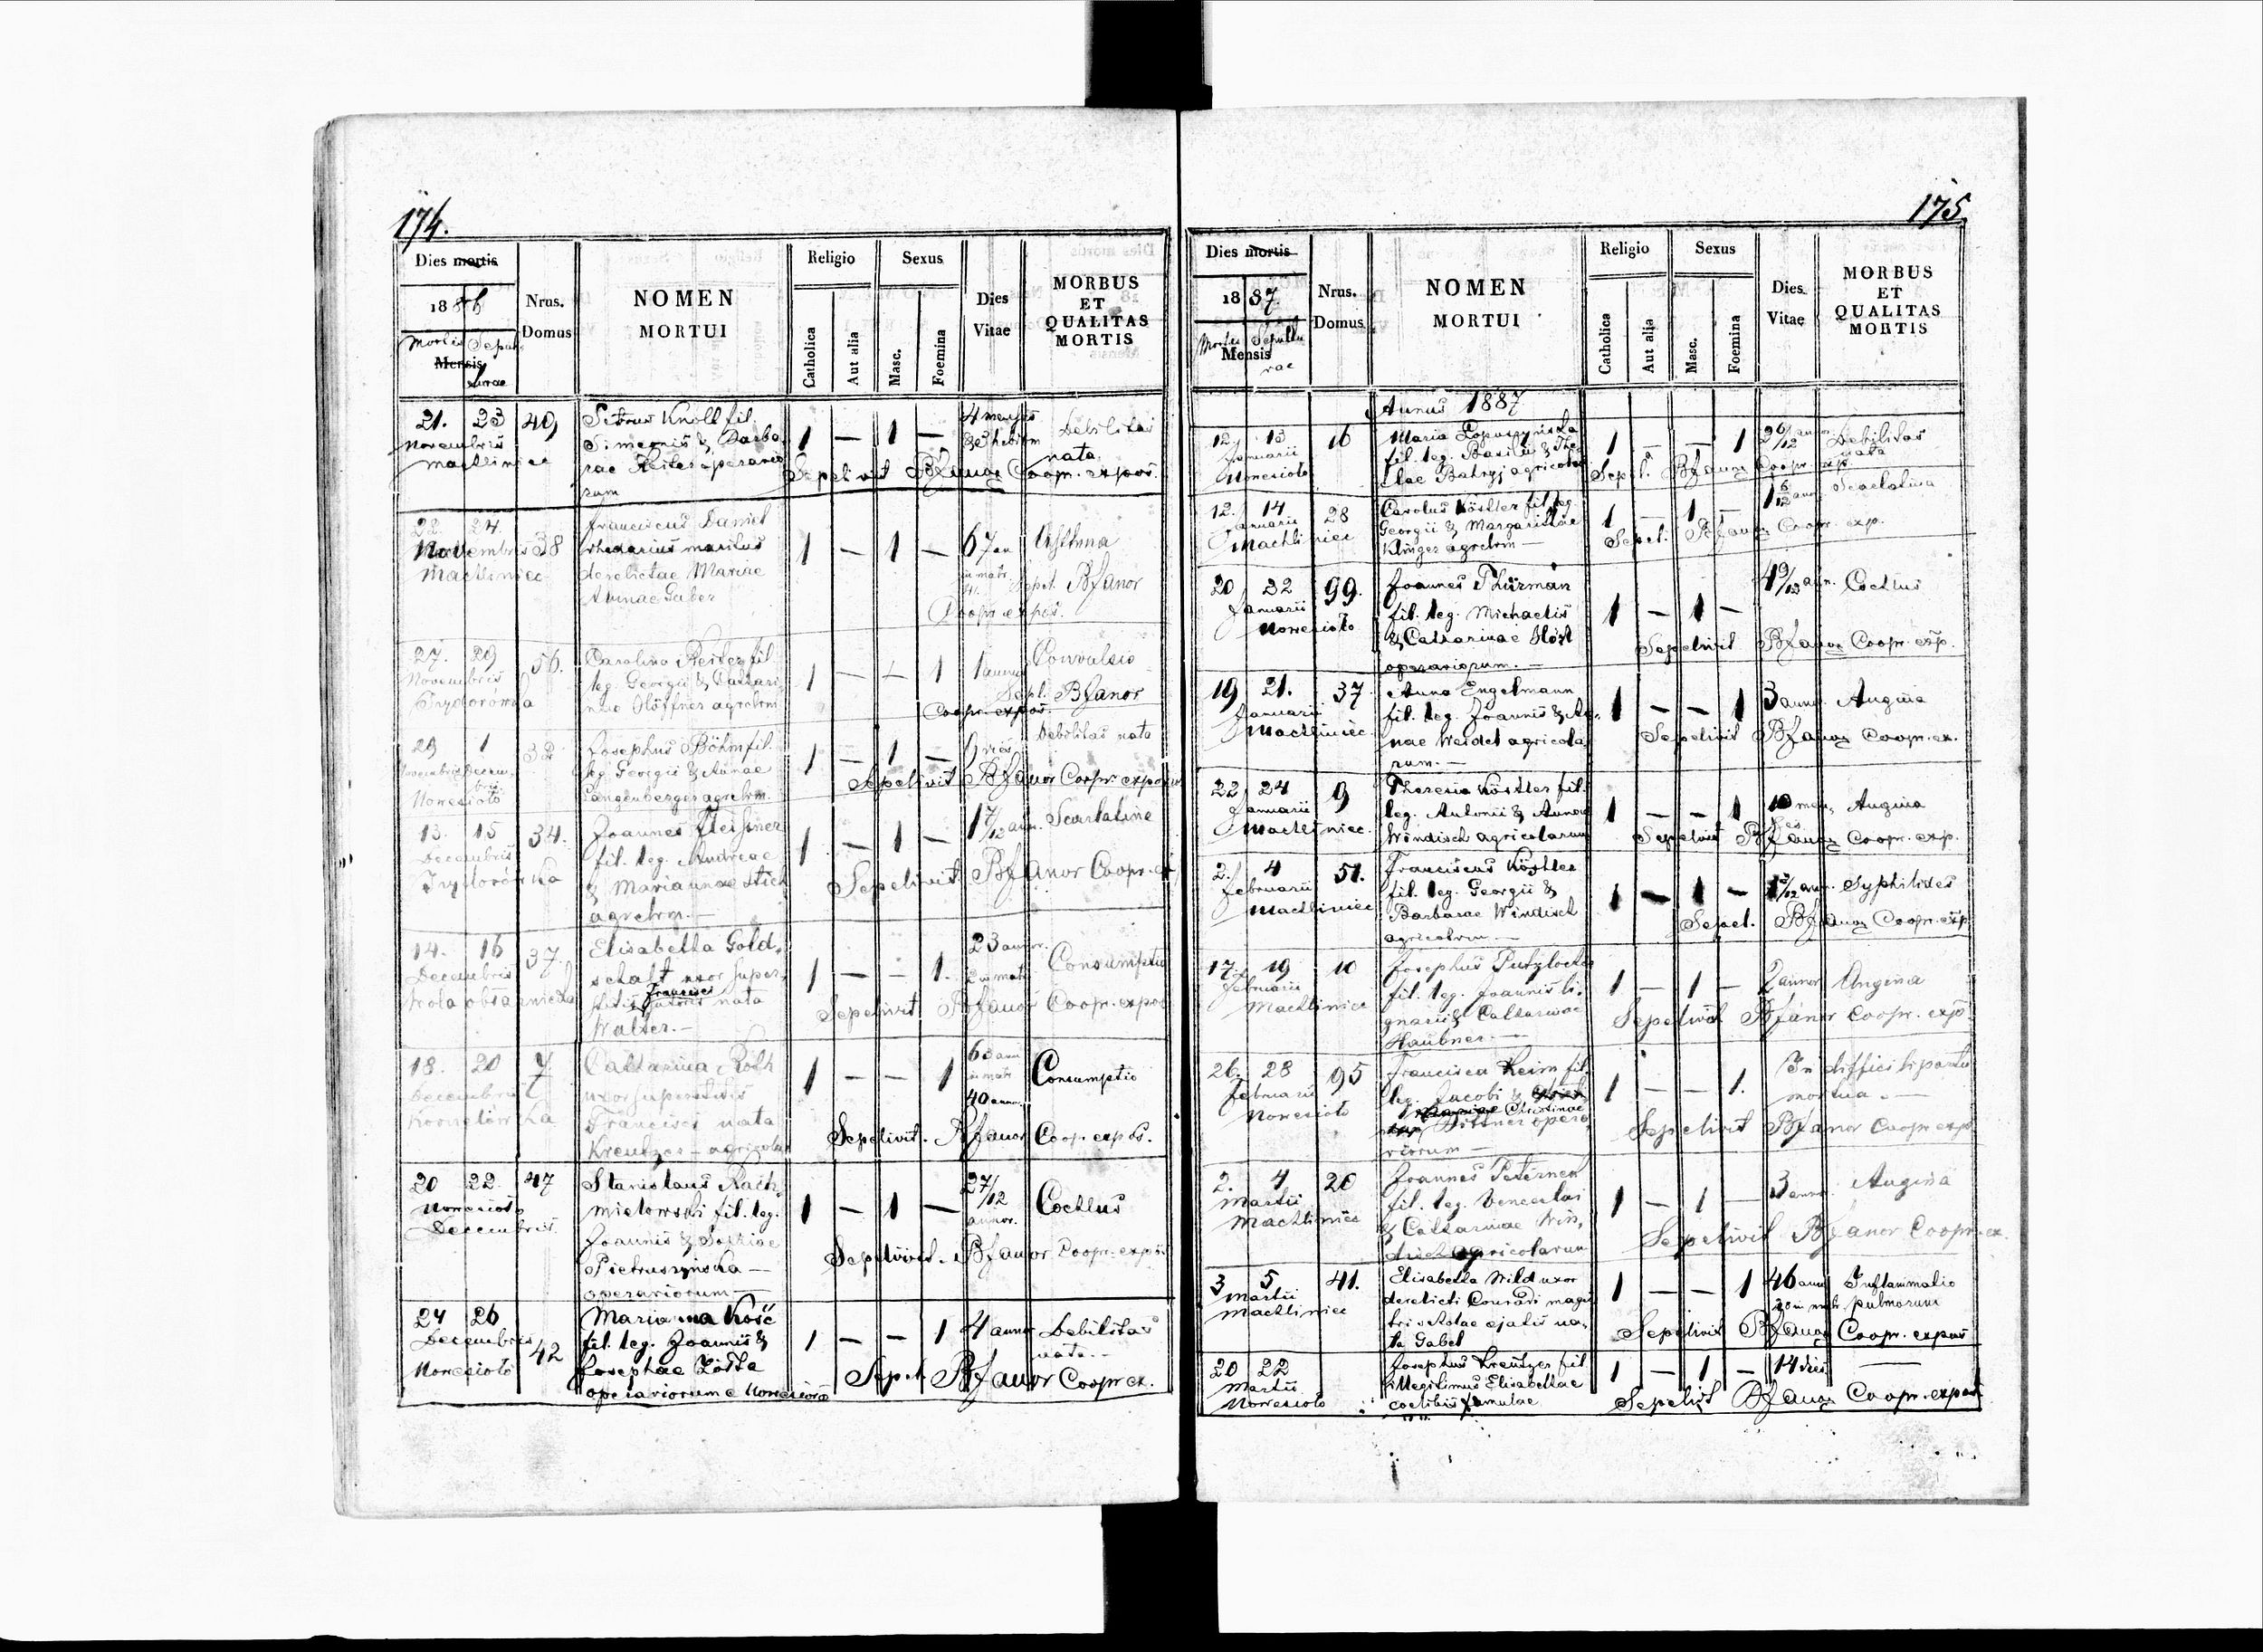 174.
Dies mortis
1886
Mortis Sepul-
Mensis turae
Nrus.
Domus
NOMEN
MORTUI
Religio
Catholica
Aut alia
Sexus
Masc.
Foemina
Dies
Vitae
MORBUS
ET
QUALITAS
MORTIS
21. 23 49 Petrus Knoll fil. 1 — 1 — 4 menses Debilitas
Novembris Simeonis & Barba-
nata
Machliniec rae Reiter operario-
Sepelivit BJanor Coopr. expos.
rum
22. 24. Franciscus Daniel
Novembris 38 rhedarius maritus 1 — 1 — 67 an Asthma
Machliniec derelictae Mariae in matr. Sepel. BJanor
Annae Gaber Coopr. expos.
27. 29 56. Carolina Reiter fil. 1 — — 1 1 anno Convulsio
Novembris leg. Georgii & Cathari-
Sepel. BJanor
nae Plöffner agrclrm
Coopr. expos.
29 1 32 Josephus Böhm fil. 1 — 1 — Debilitas nata
Novembris Decem-
bris
leg. Georgii & Annae
Sepelivit BJanor Coopr. expos.
Nowesioło Langenberger agrclrm.
13. 15 34. Joannes Fleissner 1 — 1 — 1 7/12 ann. Scarlatine
Decembris fil. leg. Andreae
& Mariannae Stich
Sepelivit BJanor Coopr. ex
agrclrm.—
14. 16 37. Elisabetha Gold- 1 — — 1. 23 annor. Consumptio
Decembris schaft uxor super-
Wola obłaźnicka stitis Francisci nata
Sepelivit BJanor Coopr. expos
Walter.—
18. 20 7 Catharina Roth 1 — — 1 63 ann Consumptio
Decembris uxor superstitis in matr.
Francisci nata 40 annr.
Kreutzer — agricolar
Sepelivit. BJanor Coopr. expos.
20 22 47 Stanislaus Rach- 1 — 1 — 2 7/12 Coctlus
Nowesioło mielowski fil. leg. annor.
Decembris. Joannis & Sophiae
Sepelivit. BJanor Coopr. expos.
Pietruszyńska —
operariorum—
24 26 42 Marianna Kość 1 — — 1 4 anno Debilitas
Decembris fil. leg. Joannis & nata.—
Nowesioło Josephae
Sepel. BJanor Coopr ex.
operariorum e Nowesioło
175
Dies mortis
1887
Mortis Sepultu-
Mensis rae
Nrus.
Domus
NOMEN
MORTUI
Religio
Catholica
Aut alia
Sexus
Masc.
Foemina
Dies
Vitae
MORBUS
ET
QUALITAS
MORTIS
Annus 1887
12. 13 16 Maria 1 — — 1 2 6/12 ann Debilitas
Januarii fil. leg. Basilii & The-
nata
Nowesioło clae Batryj agricolar
Sepel. BJanor Coopr. exp.
12. 14 28 Carolus Köstler fil. leg. 1 — 1 — 1 6/12 ann Scarlatina
Januarii Georgii & Margarithae
Machliniec Klinger agrclrm —
Sepel. BJanor Coopr. exp.
20 22 99. Joannes Thürman 1 — 1 — 4 9/12 ann. Coctlus
Januarii fil. leg. Michaelis
Nowesioło & Catharinae Hözl
Sepelivit BJanor Coopr. exp.
operariorum.—
19 21. 37 Anna Engelmann 1 — — 1 3 annor. Angina
Januarii fil. leg. Joannis & An-
Machliniec. nae Weidel agricola-
Sepelivit BJanor Coopr. ex.
rum.—
22 24 9 Theresia Köstler fil. 1 — — 1 10 men. Angina
Januarii leg. Antonii & Annae
Machliniec. Windisch agricolarum
Sepelivit BJanor Coopr. exp.
2. 4 51. Franciscus Köstler 1 — 1 — Syphilides
Februarii fil. leg. Georgii &
Machliniec Barbarae Windisch
Sepel. BJanor Coopr. exp
agricolrm.—
17. 19 10 Josephus 1 — 1 — 2 annor Angina
Februarii fil. leg. Joannis li-
Machliniec gnarii & Catharinae
Sepelivit BJanor Coopr. exp
Haubner.—
26. 28 95 Francisca Keim fil. 1 — — 1. In difficili partu
Februarii leg. Jacobi & mortua.—
Nowesioło Christinae
Dittner opera-
Sepelivit BJanor Coopr exp
riorum —
2. 4 26 Joannes Peternek 1 — 1 — 3 annor. Angina
Martii fil. leg. Venceslai
Machliniec & Catharinae Win-
Sepelivit BJanor Coopr. ex.
disch agricolarum
3 5 41. Elisabetha Wild uxor 1 — — 1 46 ann Inflammatio
Martii derelicti Conradi magi- 20 in matr. pulmorum
Machliniec stri scholae ejatis na-
Sepelivit BJanor Coopr. expos
ta Gabel
20 22 Josephus Kreutzer fil. 1 — 1 — 14 dies —
Martii illegitimus Elisabethae
Nowesioło coelibis famulae
Sepelivit BJanor Coopr. expos